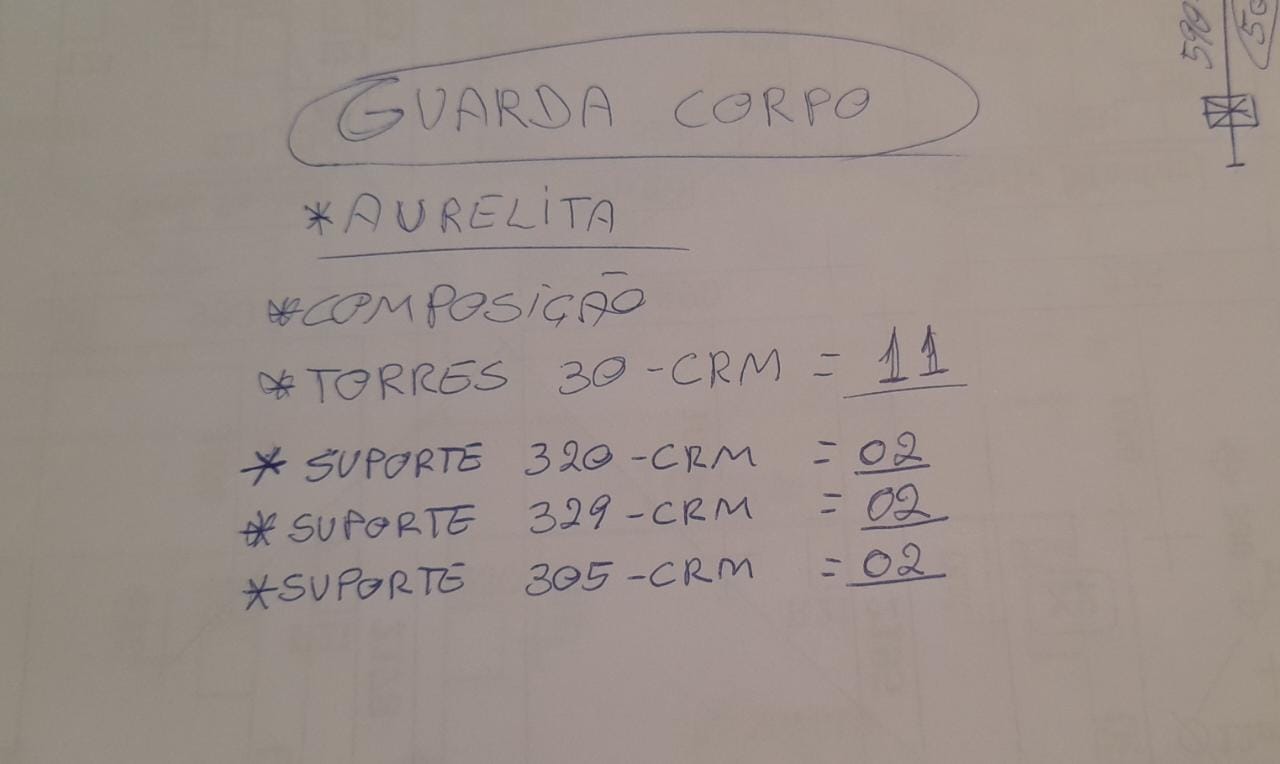 GUARDA CORPO
*AURELITA
*COMPOSIÇÃO
*TORRES 30-CRM = 11
* SUPORTE 320-CRM = 02
* SUPORTE 329-CRM = 02
*SUPORTE 305-CRM = 02
590